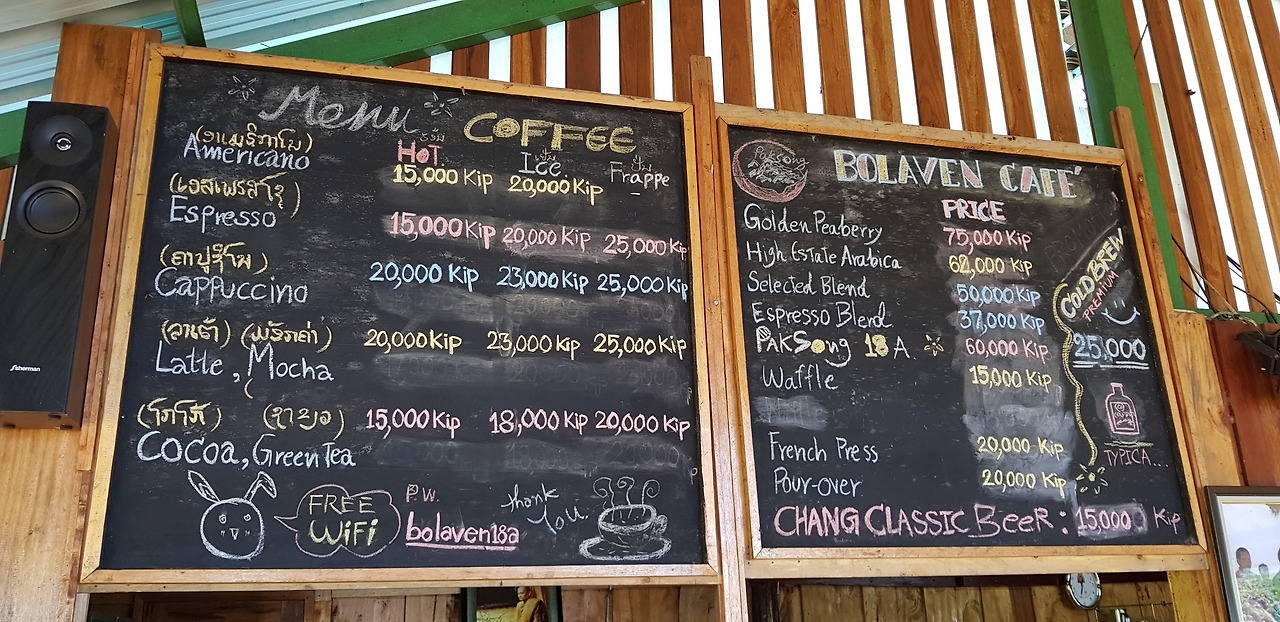 Menu COFFEE
(ອາເມຣິກາໂນ)
Americano
HOT Ice Frappe
ປັ່ນ
15,000 Kip 20,000 Kip -
(ເອສເພຣສໂຊ)
Espresso 15,000 Kip 20,000 Kip 25,000 Kip
(ຄາປູຊິໂນ)
Cappuccino 20,000 Kip 23,000 Kip 25,000 Kip
(ລາເຕ້)
Latte, Mocha 20,000 Kip 23,000 Kip 25,000 Kip
(ໂກໂກ້)
Cocoa, Green Tea 15,000 Kip 18,000 Kip 20,000 Kip
FREE
WiFi
P.W.
bolaven18a
thank
You
Paksong
BOLAVEN CAFE'
PRICE
Golden Peaberry 75,000 Kip
High Estate Arabica 62,000 Kip
Selected Blend 50,000 Kip
Espresso Blend 37,000 Kip
PAKSong 18 A. 60,000 Kip
Waffle 15,000 Kip
French Press 20,000 Kip
Pour-over 20,000 Kip
CHANG CLASSIC BeeR : 15,000 Kip
COLD BREW
PREMIUM
25,000
TYPICA...
Sherman